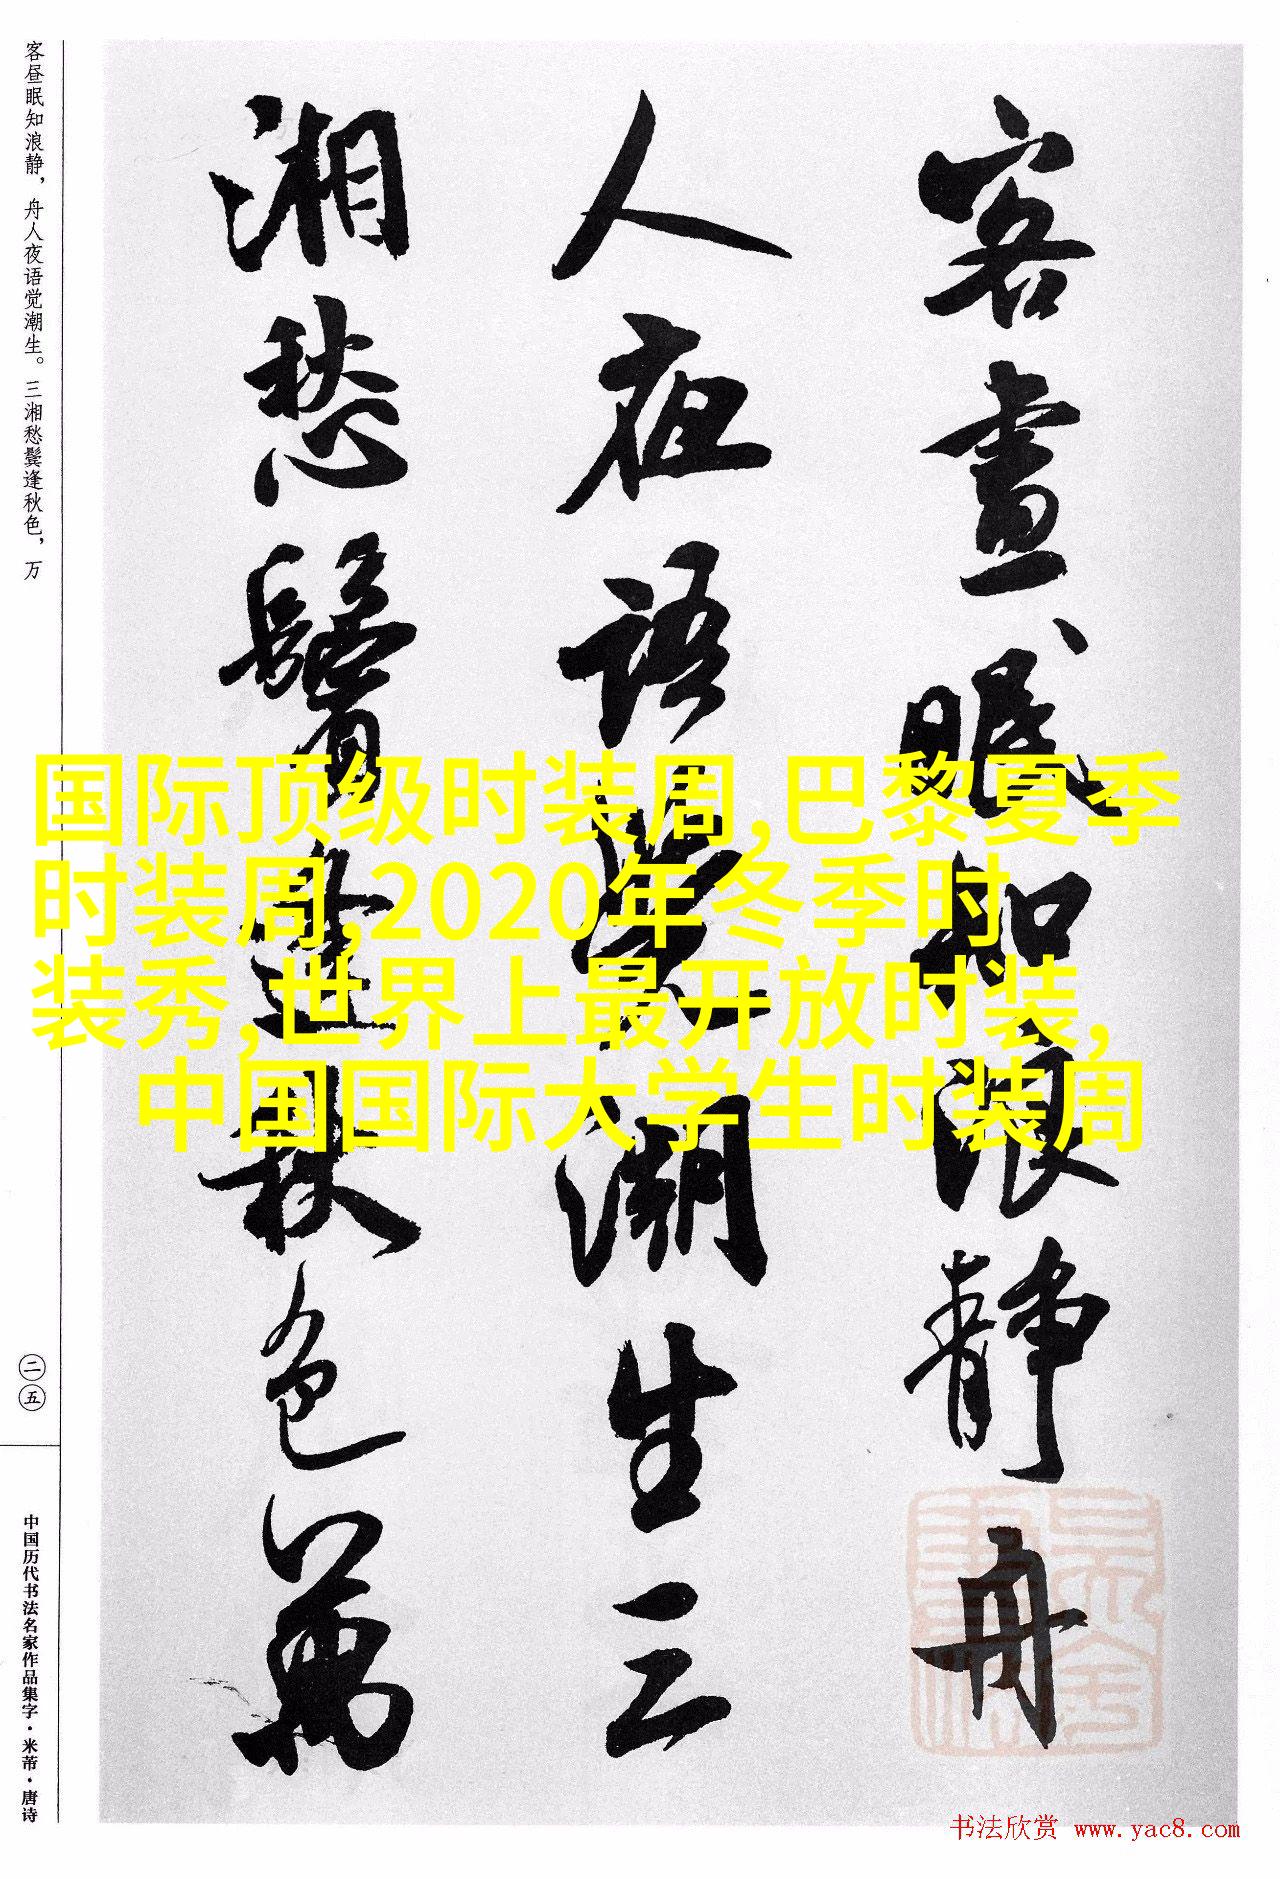 客昼眠知浪静，舟人夜语觉潮生。三湘愁鬓逢秋色，万
客晝眠知浪静舟
人夜语覺潮生三
湘愁鬢逢秋色萬
国际顶级时装周,巴黎夏季
时装周,2020年冬季时
装秀,世界上最开放时装,
中国国际大学生时装周
二五
中国历代书法名家作品集字·米芾·唐诗
书法欣赏 www.yac8.com